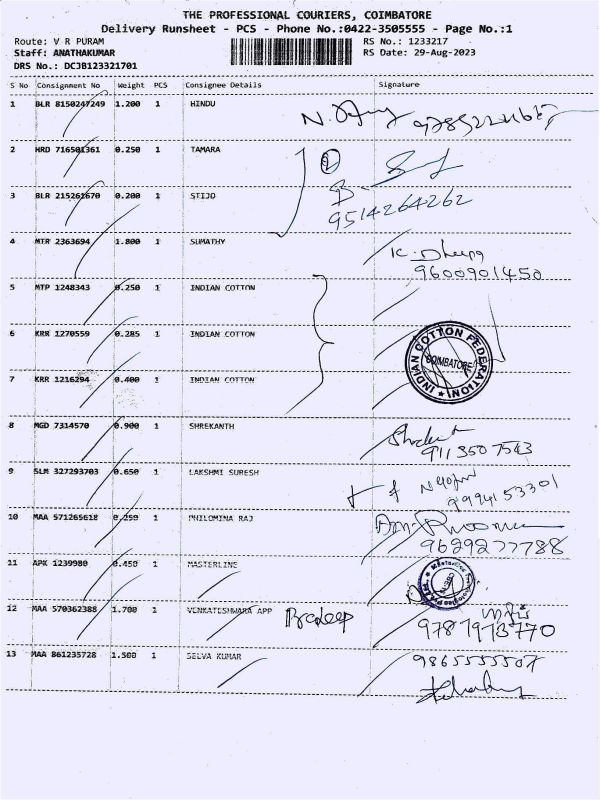 THE PROFESSIONAL COURIERS, COIMBATORE
Delivery Runsheet - PCS - Phone No.:0422-3505555 - Page No.:1
Route: V R PURAM RS No.: 1233217
Staff: ANATHAKUMAR RS Date: 29-Aug-2023
DRS No.: DCJB123321701
S No Consignment No Weight PCS Consignee Details Signature
1 BLR 8150247249 1.200 1 HINDU
2 HRD 716501361 0.250 1 TAMARA
3 BLR 215261670 0.200 1 STIJO
9514264262
4 MTR 2363694 1.800 1 SUMATHY K. Dheepa
9600901450
5 MTP 1248343 0.250 1 INDIAN COTTON
6 KRR 1270559 0.285 1 INDIAN COTTON
INDIAN COTTON FEDERATION
COIMBATORE
7 KRR 1216294 0.400 1 INDIAN COTTON
8 MGD 7314570 0.900 1 SHREKANTH
9113507543
9 SLM 327293703 0.650 1 LAKSHMI SURESH
9994153301
10 MAA 571265618 0.250 1 PHILOMINA RAJ
9629277788
11 APK 1239980 0.450 1 MASTERLINE
12 MAA 570362388 1.700 1 VENKATESHWARA APP Pradeep
9787913770
13 MAA 861235728 1.500 1 SELVA KUMAR 9865555507